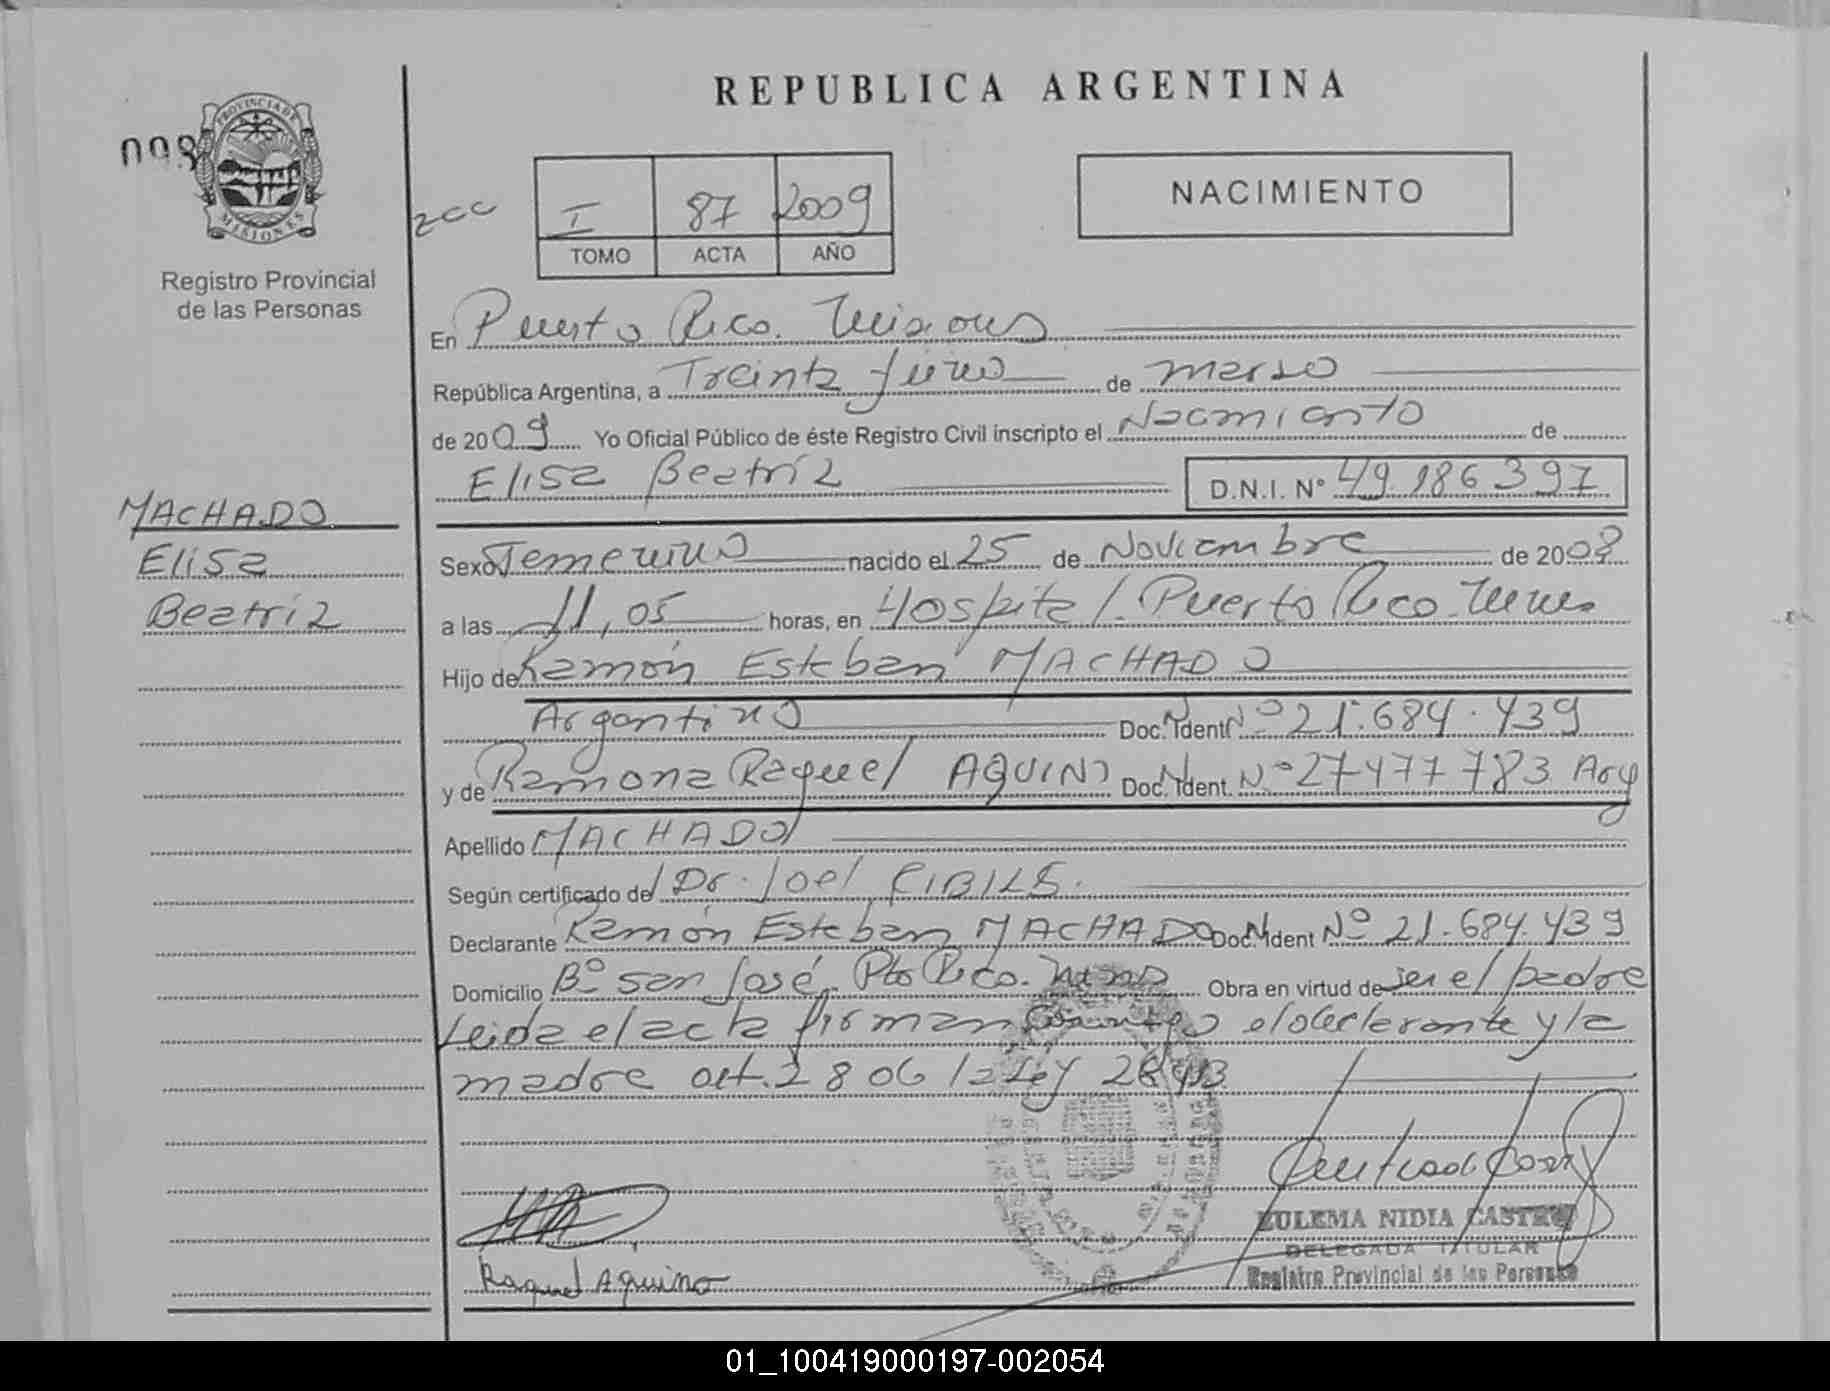 REPUBLICA ARGENTINA
098
PROVINCIA DE
MISIONES
Registro Provincial
de las Personas
I 87 2009
TOMO ACTA AÑO
NACIMIENTO
En Puerto Rico. Misiones
República Argentina, a Treinta y uno de marzo
de 2009 Yo Oficial Público de éste Registro Civil inscripto el Nacimiento de
Elisa Beatríz D.N.I. Nº 49.186.397
MACHADO
Elisa
Beatríz
Sexo Femenino nacido el 25 de Noviembre de 2008
a las 11,05 horas, en Hospital. Puerto Rico
Hijo de Ramón Esteban MACHADO
Argentino Doc. N. Ident. Nº 21.684.439
y de Ramona Raquel AQUINO Doc. N. Ident. Nº 27477783 Arg
Apellido MACHADO
Según certificado de/ Dr. Joel CIBILS.
Declarante Ramón Esteban MACHADO Doc. N. Ident Nº 21.684.439
Domicilio Bº San José. Pto Rico. Obra en virtud de ser el padre
Leida el acta firman el declarante y la
madre art. 28 la Ley 26413
Raquel Aquino
ZULEMA NIDIA CASTRO
DELEGADA TITULAR
Registro Provincial de las Personas
01_100419000197-002054